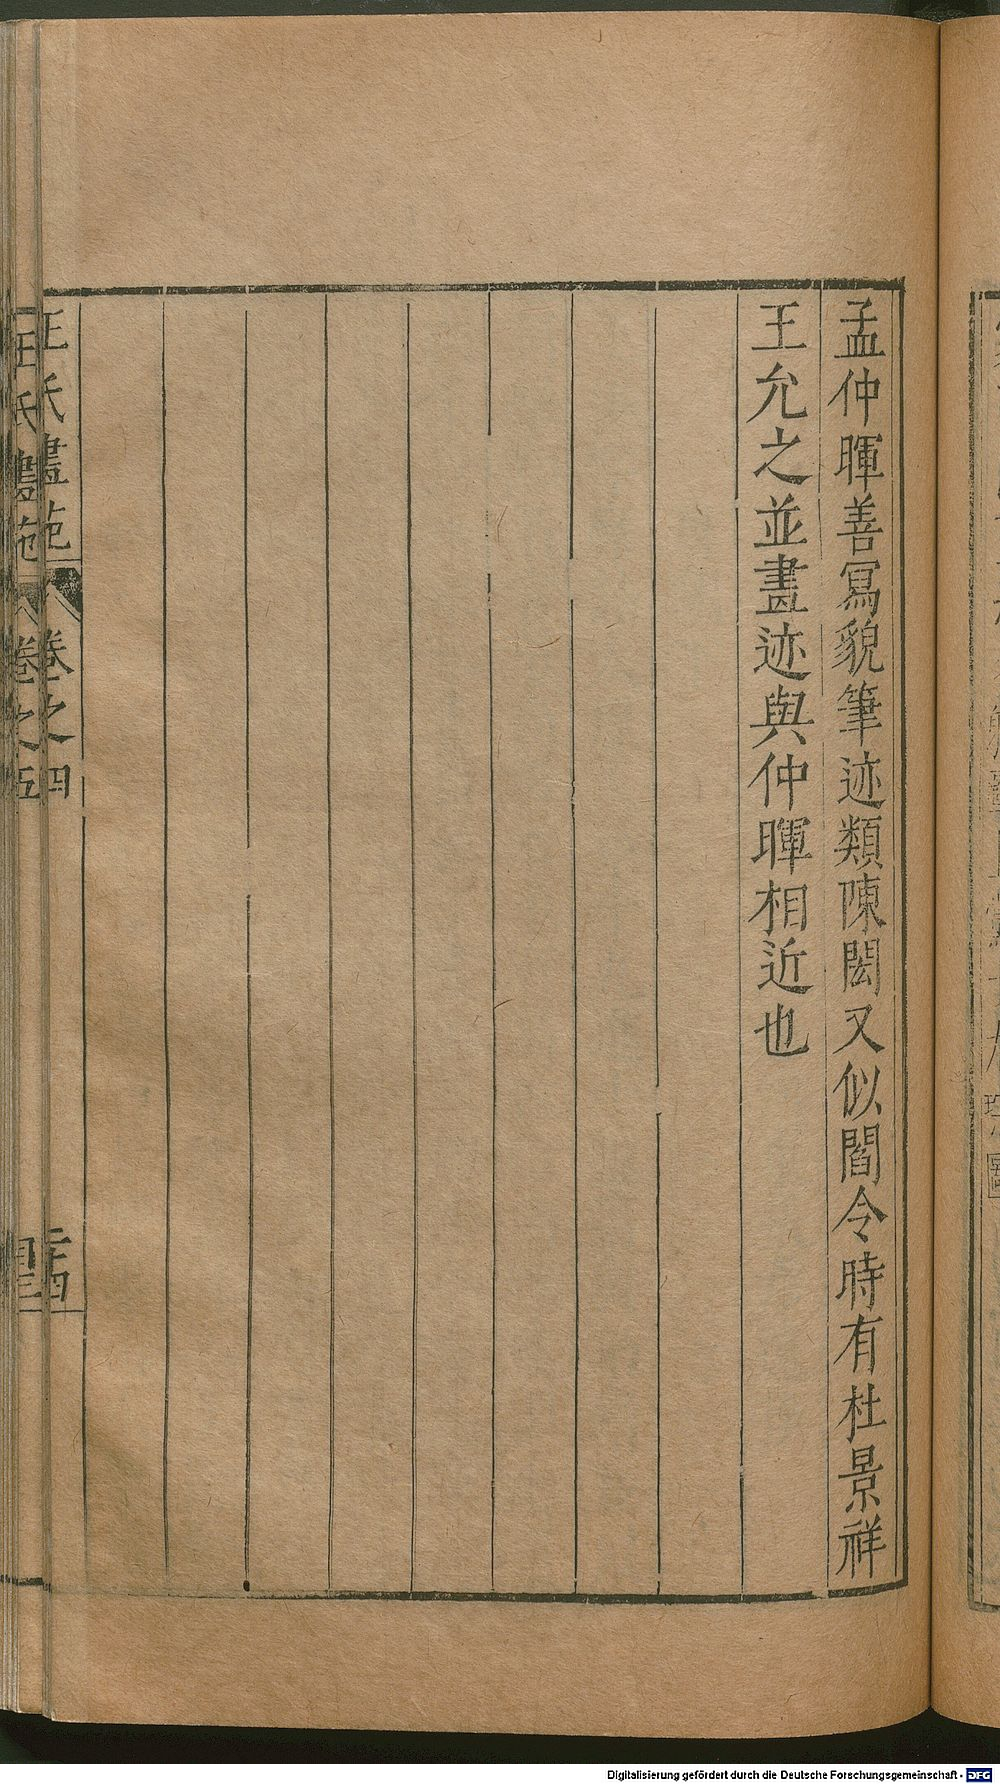 孟仲暉善寫貌筆迹類陳閎又似閻令時有杜景祥
王允之並畫迹與仲暉相近也
王氏畫苑
卷之四
二十四
王氏畫苑
卷之五
Digitalisierung gefördert durch die Deutsche Forschungsgemeinschaft - DFG